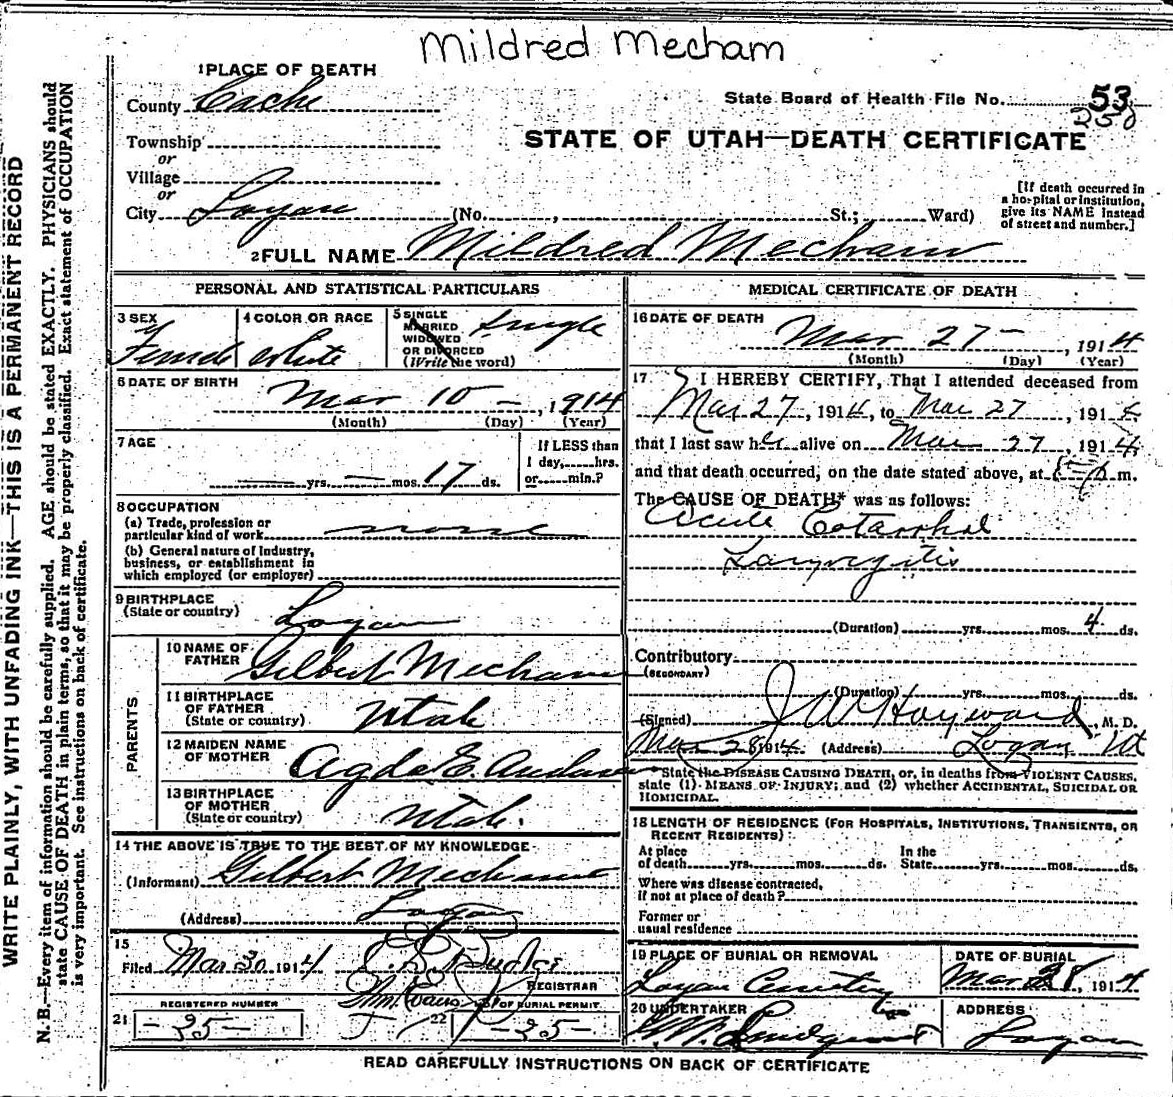 Mildred Mecham
1 PLACE OF DEATH
County Cache
State Board of Health File No. 53
258
Township
or
Village
or
City Logan (No. , St.; Ward)
STATE OF UTAH—DEATH CERTIFICATE
[If death occurred in
a hospital or institution,
give its NAME instead
of street and number.]
2 FULL NAME Mildred Mecham
PERSONAL AND STATISTICAL PARTICULARS
3 SEX
Female
4 COLOR OR RACE
White
5 SINGLE
MARRIED
WIDOWED
OR DIVORCED
(Write the word)
Single
6 DATE OF BIRTH
Mar 10 - , 1914
(Month) (Day) (Year)
7 AGE
— yrs. — mos. 17 ds.
If LESS than
1 day, hrs.
or min.?
8 OCCUPATION
(a) Trade, profession or
particular kind of work none
(b) General nature of industry,
business, or establishment in
which employed (or employer)
9 BIRTHPLACE
(State or country) Logan
PARENTS
10 NAME OF
FATHER Gilbert Mecham
11 BIRTHPLACE
OF FATHER
(State or country) Utah
12 MAIDEN NAME
OF MOTHER Agda E.
13 BIRTHPLACE
OF MOTHER
(State or country) Utah.
14 THE ABOVE IS TRUE TO THE BEST OF MY KNOWLEDGE
(Informant) Gilbert Mecham
(Address) Logan
15
Filed Mar 30 1914
REGISTRAR
REGISTERED NUMBER
21 -25-
OF BURIAL PERMIT.
22 -25-
MEDICAL CERTIFICATE OF DEATH
16 DATE OF DEATH
Mar 27 - , 1914
(Month) (Day) (Year)
17 I HEREBY CERTIFY, That I attended deceased from
Mar 27, 1914, to Mar 27, 1914
that I last saw her alive on Mar 27, 1914
and that death occurred, on the date stated above, at m.
The CAUSE OF DEATH* was as follows:
Acute Catarrhal
Laryngitis
(Duration) yrs. mos. 4 ds.
Contributory
(SECONDARY)
(Duration) yrs. mos. ds.
(Signed) J W Hayward, M. D.
Mar 28 1914. (Address) Logan Ut
*State the DISEASE CAUSING DEATH, or, in deaths from VIOLENT CAUSES,
state (1) MEANS OF INJURY; and (2) whether ACCIDENTAL, SUICIDAL OR
HOMICIDAL.
18 LENGTH OF RESIDENCE (FOR HOSPITALS, INSTITUTIONS, TRANSIENTS, OR
RECENT RESIDENTS):
At place In the
of death yrs. mos. ds. State yrs. mos. ds.
Where was disease contracted,
if not at place of death?
Former or
usual residence
19 PLACE OF BURIAL OR REMOVAL
Logan Cemetery
DATE OF BURIAL
Mar 28, 1914
20 UNDERTAKER
ADDRESS
Logan
READ CAREFULLY INSTRUCTIONS ON BACK OF CERTIFICATE
WRITE PLAINLY, WITH UNFADING INK—THIS IS A PERMANENT RECORD
N. B.—Every item of information should be carefully supplied. AGE should be stated EXACTLY. PHYSICIANS should
state CAUSE OF DEATH in plain terms, so that it may be properly classified. Exact statement of OCCUPATION
is very important. See instructions on back of certificate.